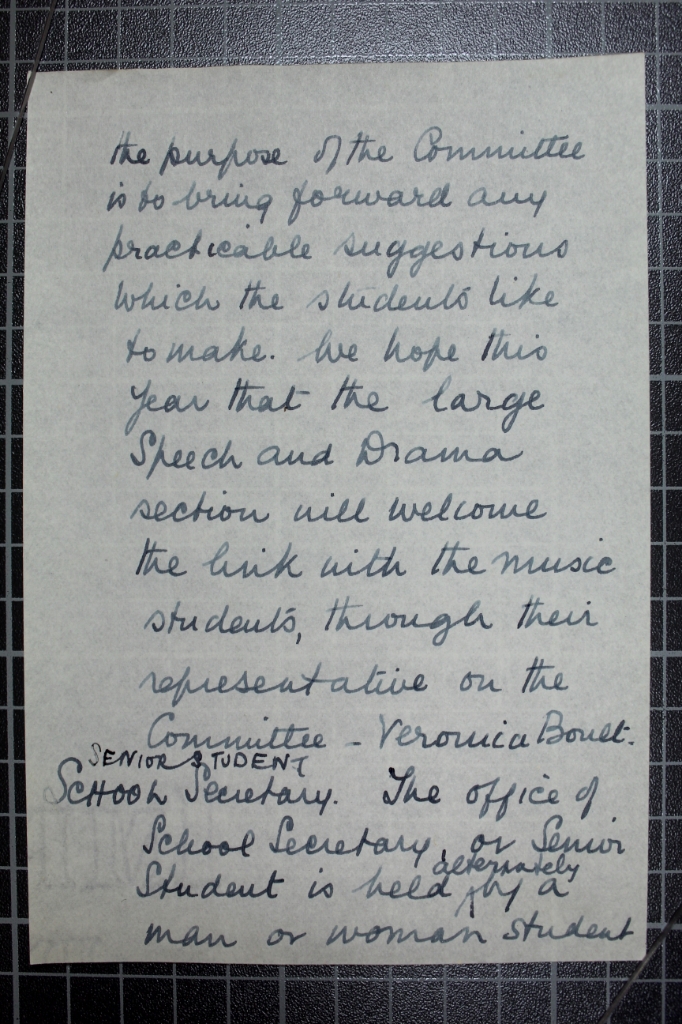 the purpose of the Committee
is to bring forward any
practicable suggestions
which the students like
to make. We hope this
year that the large
Speech and Drama
section will welcome
the link with the music
students, through their
representative on the
Committee - Veronica Bonet.
SENIOR STUDENT
School Secretary. The office of
School Secretary, or Senior
alternately
Student is held by a
man or woman student